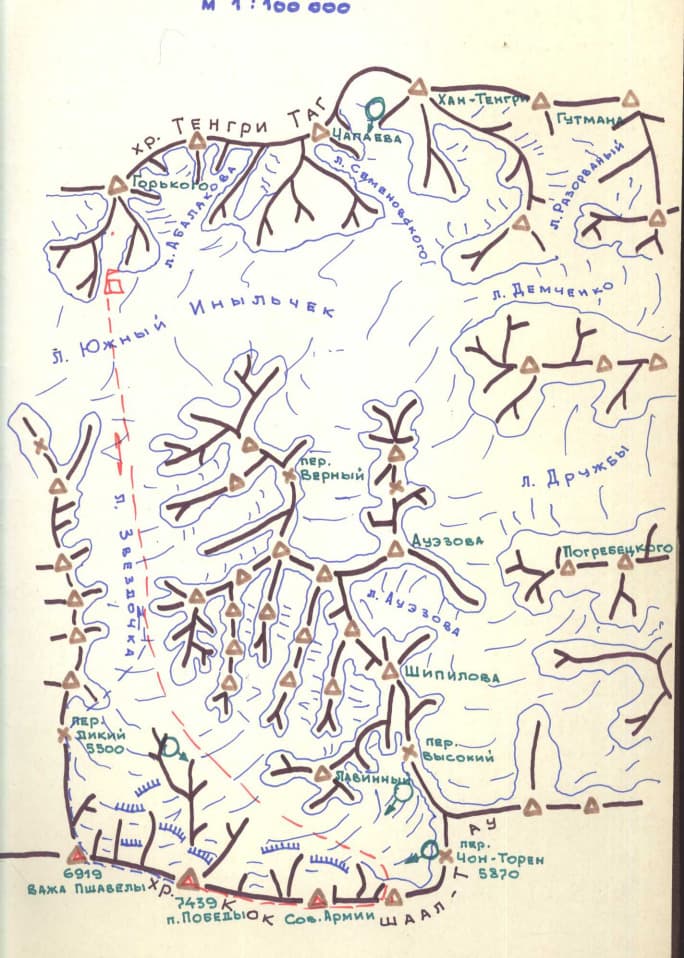 М 1:100 000
хр. Тенгри Таг
Хан-Тенгри
Гутмана
Чапаева
Горького
л. Абалакова
л. Семеновского
л. Разорваный
л. Демченко
л. Южный Иныльчек
пер.
Верный
л. Дружбы
л. Звездочка
Ауэзова
Погребецкого
л. Ауэзова
Шипилова
пер.
Дикий
5500
пер.
Высокий
Лавинный
пер.
Чон-Торен
5870
6919
Важа Пшавелы
7439
п. Победы
Сов. Армии
хр. Кокшаал-Тау